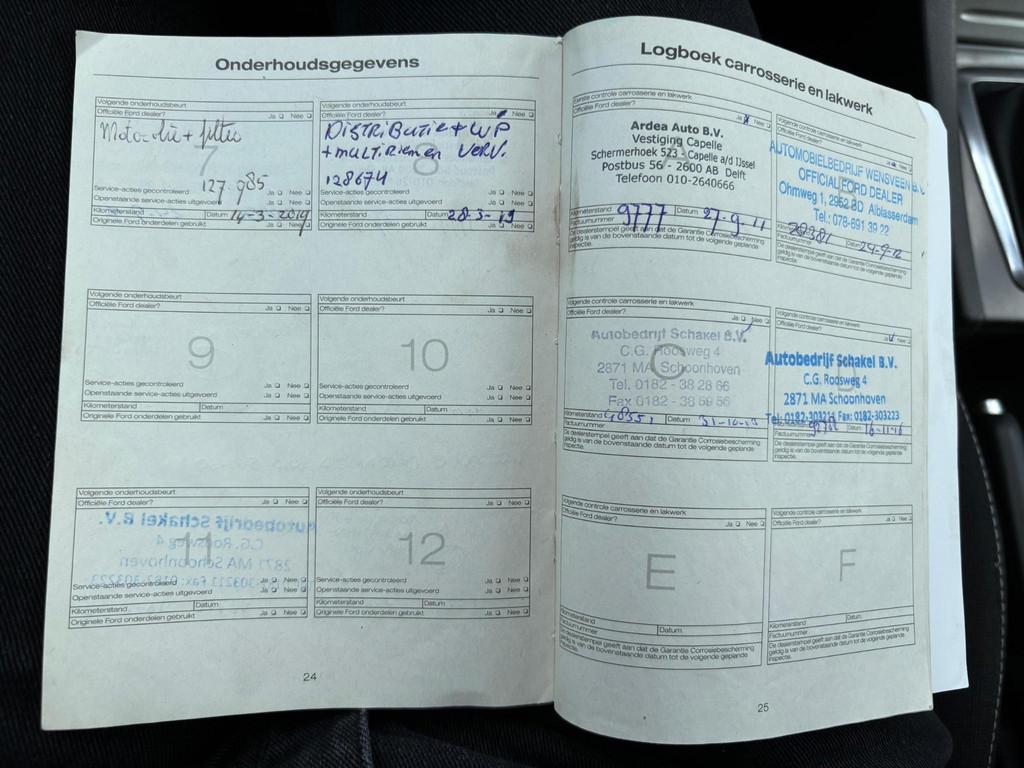 Onderhoudsgegevens
Volgende onderhoudsbeurt
Officiële Ford dealer? Ja Nee
7
127.985
Service-acties gecontroleerd Ja Nee
Openstaande service-acties uitgevoerd
Kilometerstand Datum 14-3-2019
Originele Ford onderdelen gebruikt Ja Nee
Volgende onderhoudsbeurt
Officiële Ford dealer? Ja Nee
8
DISTRIBUTIE + WP
+ MULTIRIEMEN VERV.
128674
Service-acties gecontroleerd Ja Nee
Openstaande service-acties uitgevoerd
Kilometerstand Datum 28-3-19
Originele Ford onderdelen gebruikt Ja Nee
Volgende onderhoudsbeurt
Officiële Ford dealer? Ja Nee
9
Service-acties gecontroleerd Ja Nee
Openstaande service-acties uitgevoerd
Kilometerstand Datum
Originele Ford onderdelen gebruikt Ja Nee
Volgende onderhoudsbeurt
Officiële Ford dealer? Ja Nee
10
Service-acties gecontroleerd Ja Nee
Openstaande service-acties uitgevoerd
Kilometerstand Datum
Originele Ford onderdelen gebruikt Ja Nee
Volgende onderhoudsbeurt
Officiële Ford dealer? Ja Nee
11
Service-acties gecontroleerd Ja Nee
Openstaande service-acties uitgevoerd
Kilometerstand Datum
Originele Ford onderdelen gebruikt Ja Nee
Volgende onderhoudsbeurt
Officiële Ford dealer? Ja Nee
12
Service-acties gecontroleerd Ja Nee
Openstaande service-acties uitgevoerd
Kilometerstand Datum
Originele Ford onderdelen gebruikt Ja Nee
24
Logboek carrosserie en lakwerk
Eerste controle carrosserie en lakwerk
Officiële Ford dealer? Ja Nee
Ardea Auto B.V.
Vestiging Capelle
Schermerhoek 523 - Capelle a/d IJssel
Postbus 56 - 2600 AB Delft
Telefoon 010-2640666
Kilometerstand 9777 Datum 27-9-11
Factuurnummer
De dealerstempel geeft aan dat de Garantie Corrosiebescherming
geldig is van bovenstaande datum tot de volgende geplande
inspectie.
Volgende controle carrosserie en lakwerk
Officiële Ford dealer? Ja Nee
AUTOMOBIELBEDRIJF WENSVEEN B.V.
OFFICIAL FORD DEALER
Ohmweg 1, 2952 BD Alblasserdam
Tel.: 078-691 39 22
Datum 24-9-12
Factuurnummer
De dealerstempel geeft aan dat de Garantie Corrosiebescherming
geldig is van bovenstaande datum tot de volgende geplande
inspectie.
Volgende controle carrosserie en lakwerk
Officiële Ford dealer? Ja Nee
C
Autobedrijf Schakel B.V.
C.G. Roosweg 4
2871 MA Schoonhoven
Tel. 0182 - 38 28 66
Kilometerstand Datum
Factuurnummer
De dealerstempel geeft aan dat de Garantie Corrosiebescherming
geldig is van bovenstaande datum tot de volgende geplande
inspectie.
Volgende controle carrosserie en lakwerk
Officiële Ford dealer? Ja Nee
Autobedrijf Schakel B.V.
C.G. Roosweg 4
2871 MA Schoonhoven
Tel: 0182-303211 Fax: 0182-303223
Datum
Factuurnummer
De dealerstempel geeft aan dat de Garantie Corrosiebescherming
geldig is van bovenstaande datum tot de volgende geplande
inspectie.
Volgende controle carrosserie en lakwerk
Officiële Ford dealer? Ja Nee
E
Kilometerstand Datum
Factuurnummer
De dealerstempel geeft aan dat de Garantie Corrosiebescherming
geldig is van bovenstaande datum tot de volgende geplande
inspectie.
Volgende controle carrosserie en lakwerk
Officiële Ford dealer? Ja Nee
F
Kilometerstand Datum
Factuurnummer
De dealerstempel geeft aan dat de Garantie Corrosiebescherming
geldig is van bovenstaande datum tot de volgende geplande
inspectie.
25